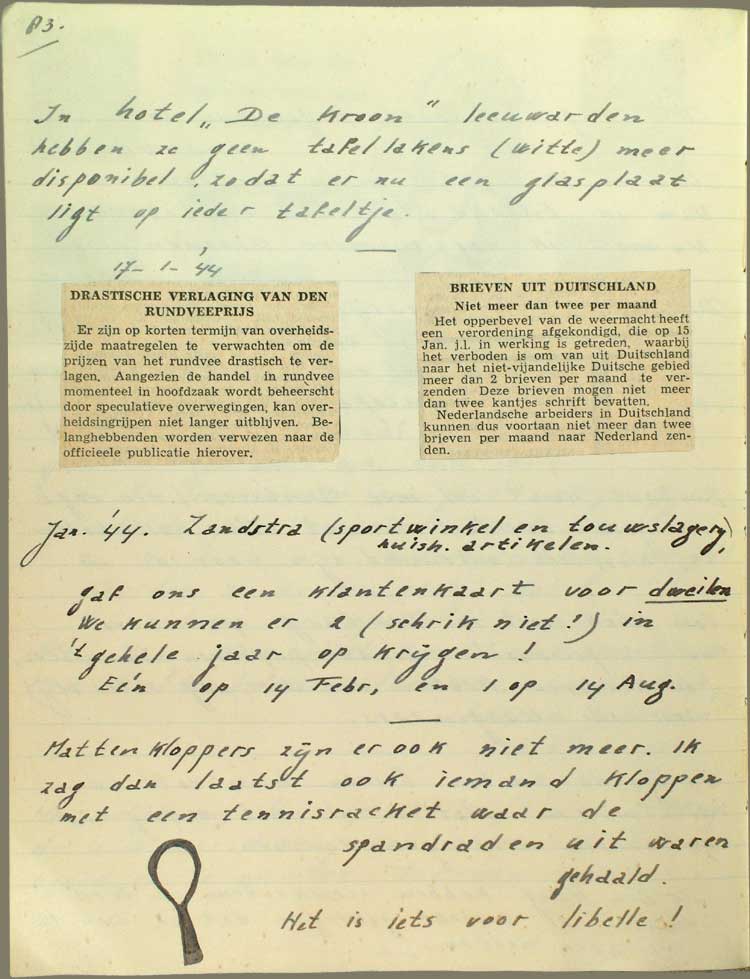 83.
In hotel „De Kroon" leeuwarden
hebben ze geen tafellakens (witte) meer
disponibel, zodat er nu een glasplaat
ligt op ieder tafeltje.
17-1-'44
DRASTISCHE VERLAGING VAN DEN
RUNDVEEPRIJS
Er zijn op korten termijn van overheids-
zijde maatregelen te verwachten om de
prijzen van het rundvee drastisch te ver-
lagen. Aangezien de handel in rundvee
momenteel in hoofdzaak wordt beheerscht
door speculatieve overwegingen, kan over-
heidsingrijpen niet langer uitblijven. Be-
langhebbenden worden verwezen naar de
officieele publicatie hierover.
BRIEVEN UIT DUITSCHLAND
Niet meer dan twee per maand
Het opperbevel van de weermacht heeft
een verordening afgekondigd, die op 15
Jan. j.l. in werking is getreden, waarbij
het verboden is om van uit Duitschland
naar het niet-vijandelijke Duitsche gebied
meer dan 2 brieven per maand te ver-
zenden Deze brieven mogen niet meer
dan twee kantjes schrift bevatten.
Nederlandsche arbeiders in Duitschland
kunnen dus voortaan niet meer dan twee
brieven per maand naar Nederland zen-
den.
Jan. '44. Zandstra (sportwinkel en touwslagery,
huish. artikelen.
gaf ons een klantenkaart voor dweilen
We kunnen er 2 (schrik niet!) in
't gehele jaar op krijgen!
Eén op 14 Febr, en 1 op 14 Aug.
Mattenkloppers zijn er ook niet meer. Ik
zag dan laatst ook iemand kloppen
met een tennisracket waar de
spandraden uit waren
gehaald.
Het is iets voor libelle!